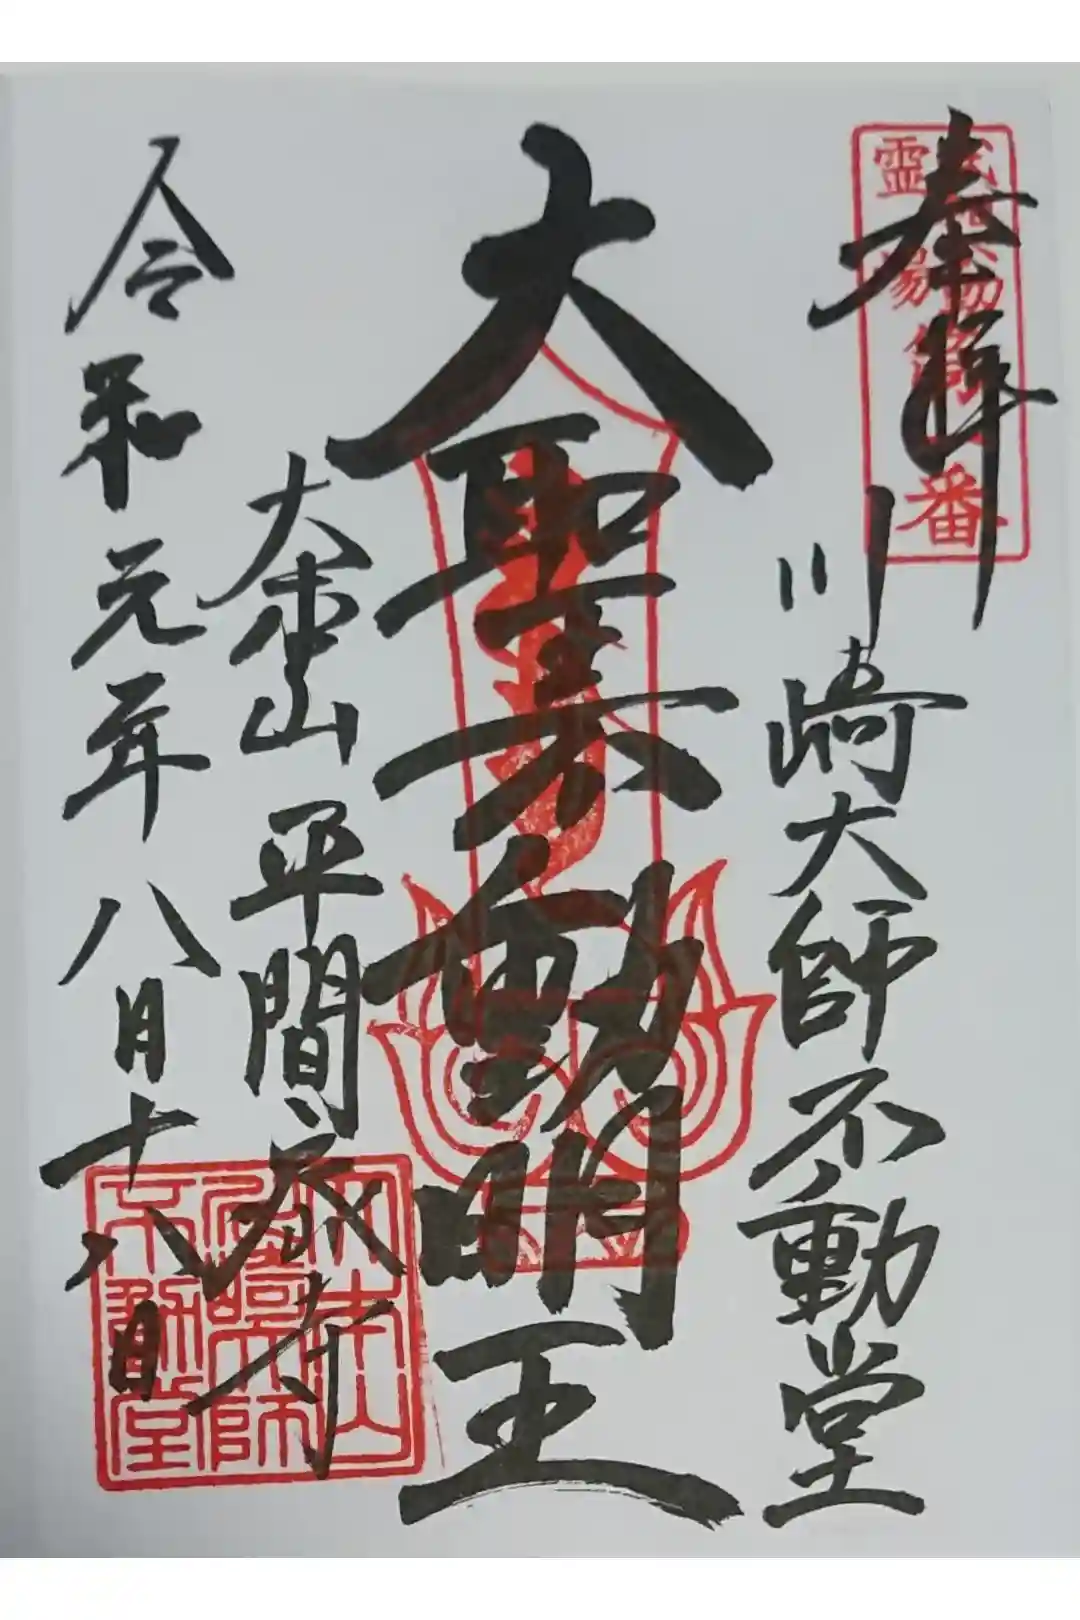 奉拝
川崎大師不動堂
大聖不動明王
大本山 平間寺
令和元年八月十八日
霊場
第
番
大本山
川崎大師
不動堂